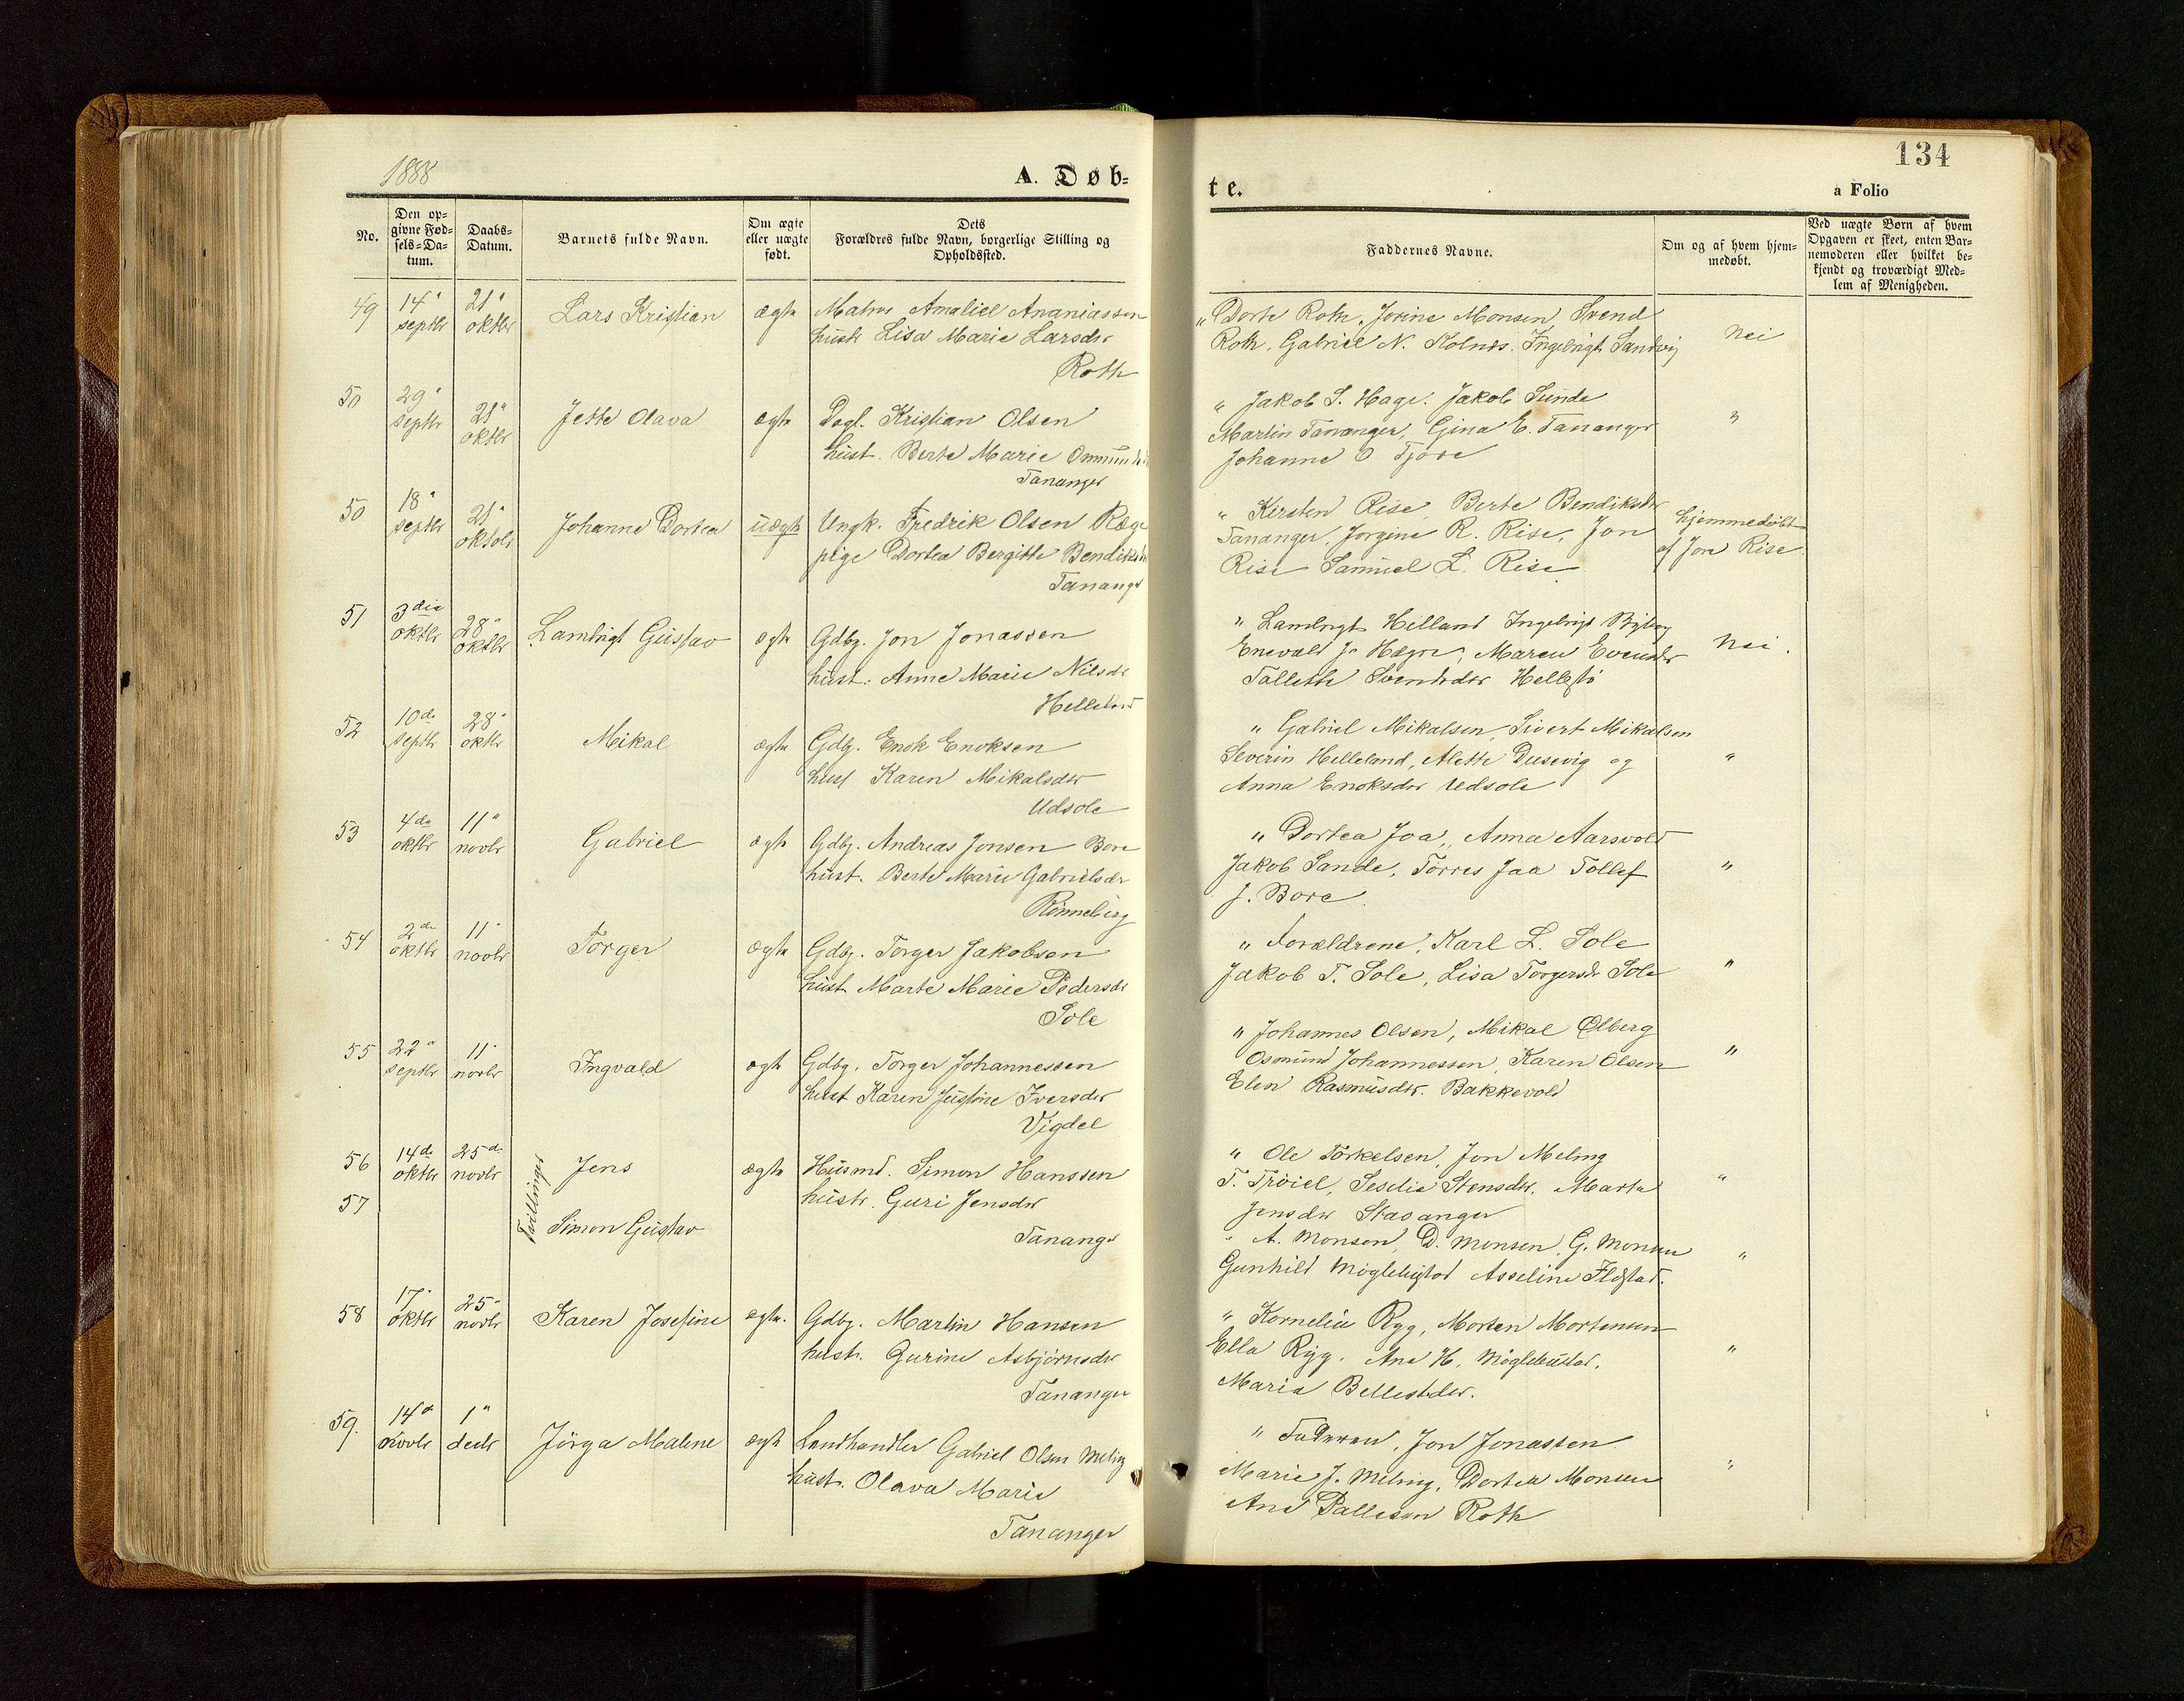 1888
A. Døb-
te.
134
a Folio
No.
Den op-
givne Fød-
sels-Da-
tum.
Daabs-
Datum.
Barnets fulde Navn.
Om ægte
eller uægte
født.
Dets
Forældres fulde Navn, borgerlige Stilling og
Opholdssted.
Faddernes Navne.
Om og af hvem hjem-
medøbt.
Ved uægte Børn af hvem
Opgaven er skeet, enten Bar-
nemoderen eller hvilket be-
kjendt og troværdigt Med-
lem af Menigheden.
49 14" 21" Lars Kristian ægte Matros Amaliel Ananiassen
septbr oktbr hustr Lisa Marie Larsdtr
Roth
" Dorte Roth, Jorine Monsen Svend
Roth, Gabriel N. Kolnes. Ingebrigt Sandvig
Nei
50 29" 21" Jette Olava ægte Dagl. Kristian Olsen
septbr oktbr hust. Berte Marie
Tananger
" Jakob S. Hage. Jakob Sunde
Martin Tananger, Gina E. Tananger
Johanne O Tjora
"
50 18" 21" Johanne Dortea uægte Ungk. Fredrik Olsen Ræge
septbr oktobr pige Dortea Bergitte
Tananger
" Kirsten Rise, Berte Bendiksdtr
Tananger, Jorgine R. Rise, Jon
Rise Samuel L. Rise
hjemmedøbt
af Jon Rise.
51 3die 28" Lambrigt Gustav ægte Gdbg. Jon Jonassen
oktbr oktbr hust. Anne Marie Nilsdtr
Helleland
" Lambrigt Helland Ingebrigt
Enevald J. Maren
Tallette Svendsdtr Hellestø
Nei.
52 10de 28" Mikal ægte Gdbg. Enok Enoksen
septbr oktbr hust Karen Mikalsdtr
Udsole
" Gabriel Mikalsen, Sivert Mikalsen
Severin Helleland, Alette Dusevig og
Anna Enoksdtr Udsole
"
53 4de 11" Gabriel ægte Gdbg. Andreas Jonsen Bore
oktbr novbr hust. Berte Marie Gabrielsdtr
Rønneberg
" Dortea Joa, Anna Aarsvold
Jakob Sande, Torres Jaa Tollef
J. Bore.
"
54 2de 11" Torger ægte Gdbg. Torger Jakobsen
oktbr novbr hust Marte Marie Pedersdtr
Sole
" Forældrene, Karl L. Sole
Jakob T. Sole, Lisa Torgersdtr Sole
"
55 22" 11" Ingvald ægte Gdbg. Torger Johannessen
septbr novbr hust Karen Justine Iversdtr
Vigdel
" Johannes Olsen, Mikal Ølberg
Osmund Johannessen, Karen Olsen
Elen Rasmusdtr. Bakkevold
"
56 14de 25de Jens ægte Husmd. Simon Hanssen
oktbr novbr hustr. Guri Jensdtr
57 Tvillinger Simon Gustav Tananger
" Ole Torkelsen, Jon Meling
T. Trøiel, Seselie Stensdtr. Marta
Jensdtr Stavanger
"
" A. Monsen, D. Monsen, G. Monsen
Gunhild Møglebustad Asseline Flistad.
"
58 17" 25" Karen Josefine ægte. Gdbg. Martin Hansen
oktbr novbr hustr. Gurine Asbjørnsdtr
Tananger
" Kornelia Ryg, Morten Mortensen
Ella Ryg. Ane H. Møglebustad.
Maria
"
59. 14de 1" Jørga Malene ægte Landhandler Gabriel Olsen Meling
novbr decbr hustr. Olava Marie
Tananger
" Faderen, Jon Jonassen
Marie J. Meling, Dortea Monsen
Ane Pallesen Roth
"